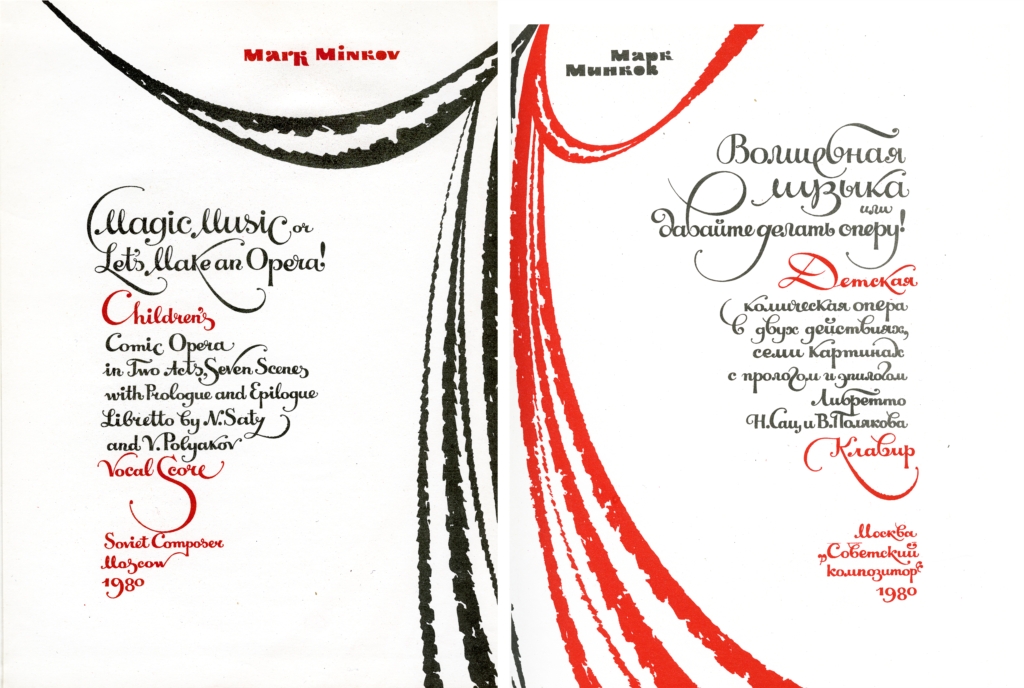 Mark Minkov
Magic Music or
Let's Make an Opera!
Children's
Comic Opera
in Two Acts, Seven Scenes
with Prologue and Epilogue
Libretto by N. Satz
and V. Polyakov
Vocal Score
Soviet Composer
Moscow
1980
Марк
Минков
Волшебная
музыка
или
давайте делать оперу!
Детская
комическая опера
в двух действиях,
семи картинах
с прологом и эпилогом
Либретто
Н. Сац и В. Полякова
Клавир
Москва
„Советский
композитор“
1980